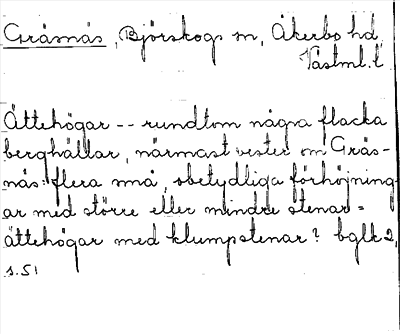 Gräsnäs, Björskogs sn, Åkerbo hd,
Västml. l
Ättehögar -- rundtom några flacka
berghällar, närmast vester om Gräs-
näs: flera små, obetydliga förhöjning-
ar med större eller mindre stenar =
ättehögar med klumpstenar? bglk 2,
s. 51